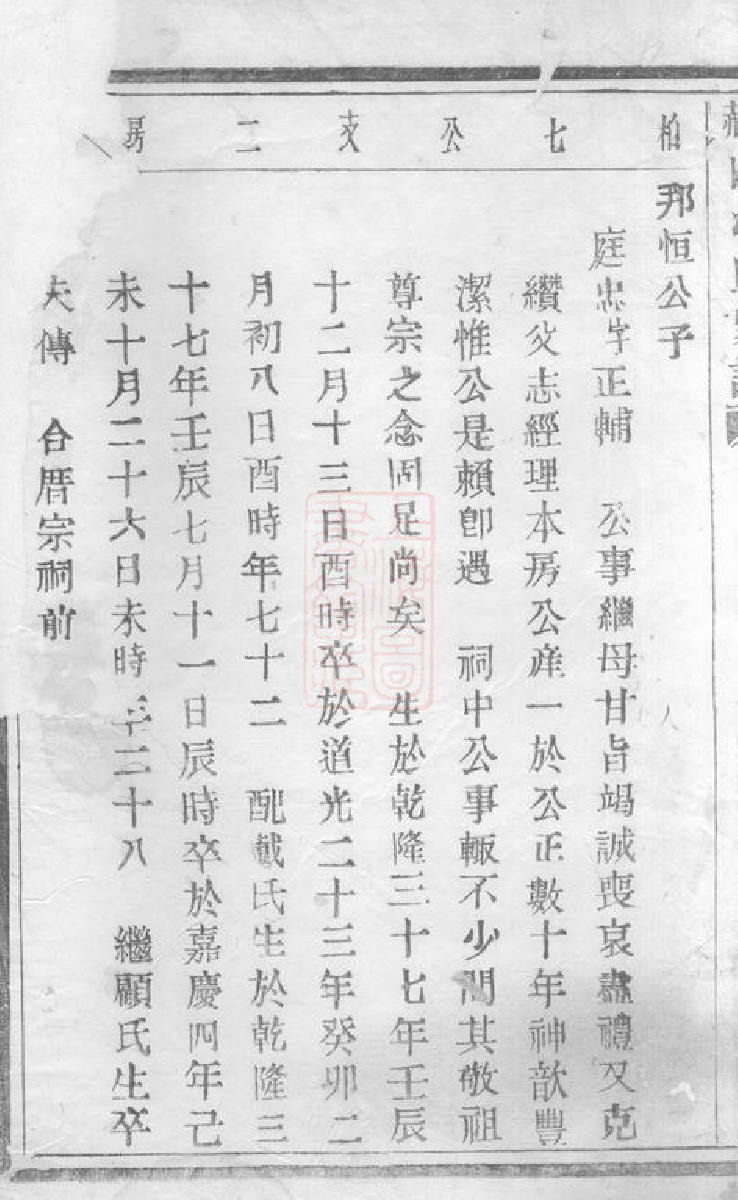 柏七公支二房
邦恒公子
庭忠字正輔　公事繼母甘旨竭誠喪哀盡禮又克
纘父志經理本房公産一於公正數十年神歆豐
潔惟公是賴卽遇　祠中公事輒不少閒其敬祖
尊宗之念固足尚矣　生於乾隆三十七年壬辰
十二月十三日酉時卒於道光二十三年癸卯二
月初八日酉時年七十二　配戴氏生於乾隆三
十七年壬辰七月十一日辰時卒於嘉慶四年己
未十月二十六日未時年二十八　繼顧氏生卒
失傳　合厝宗祠前